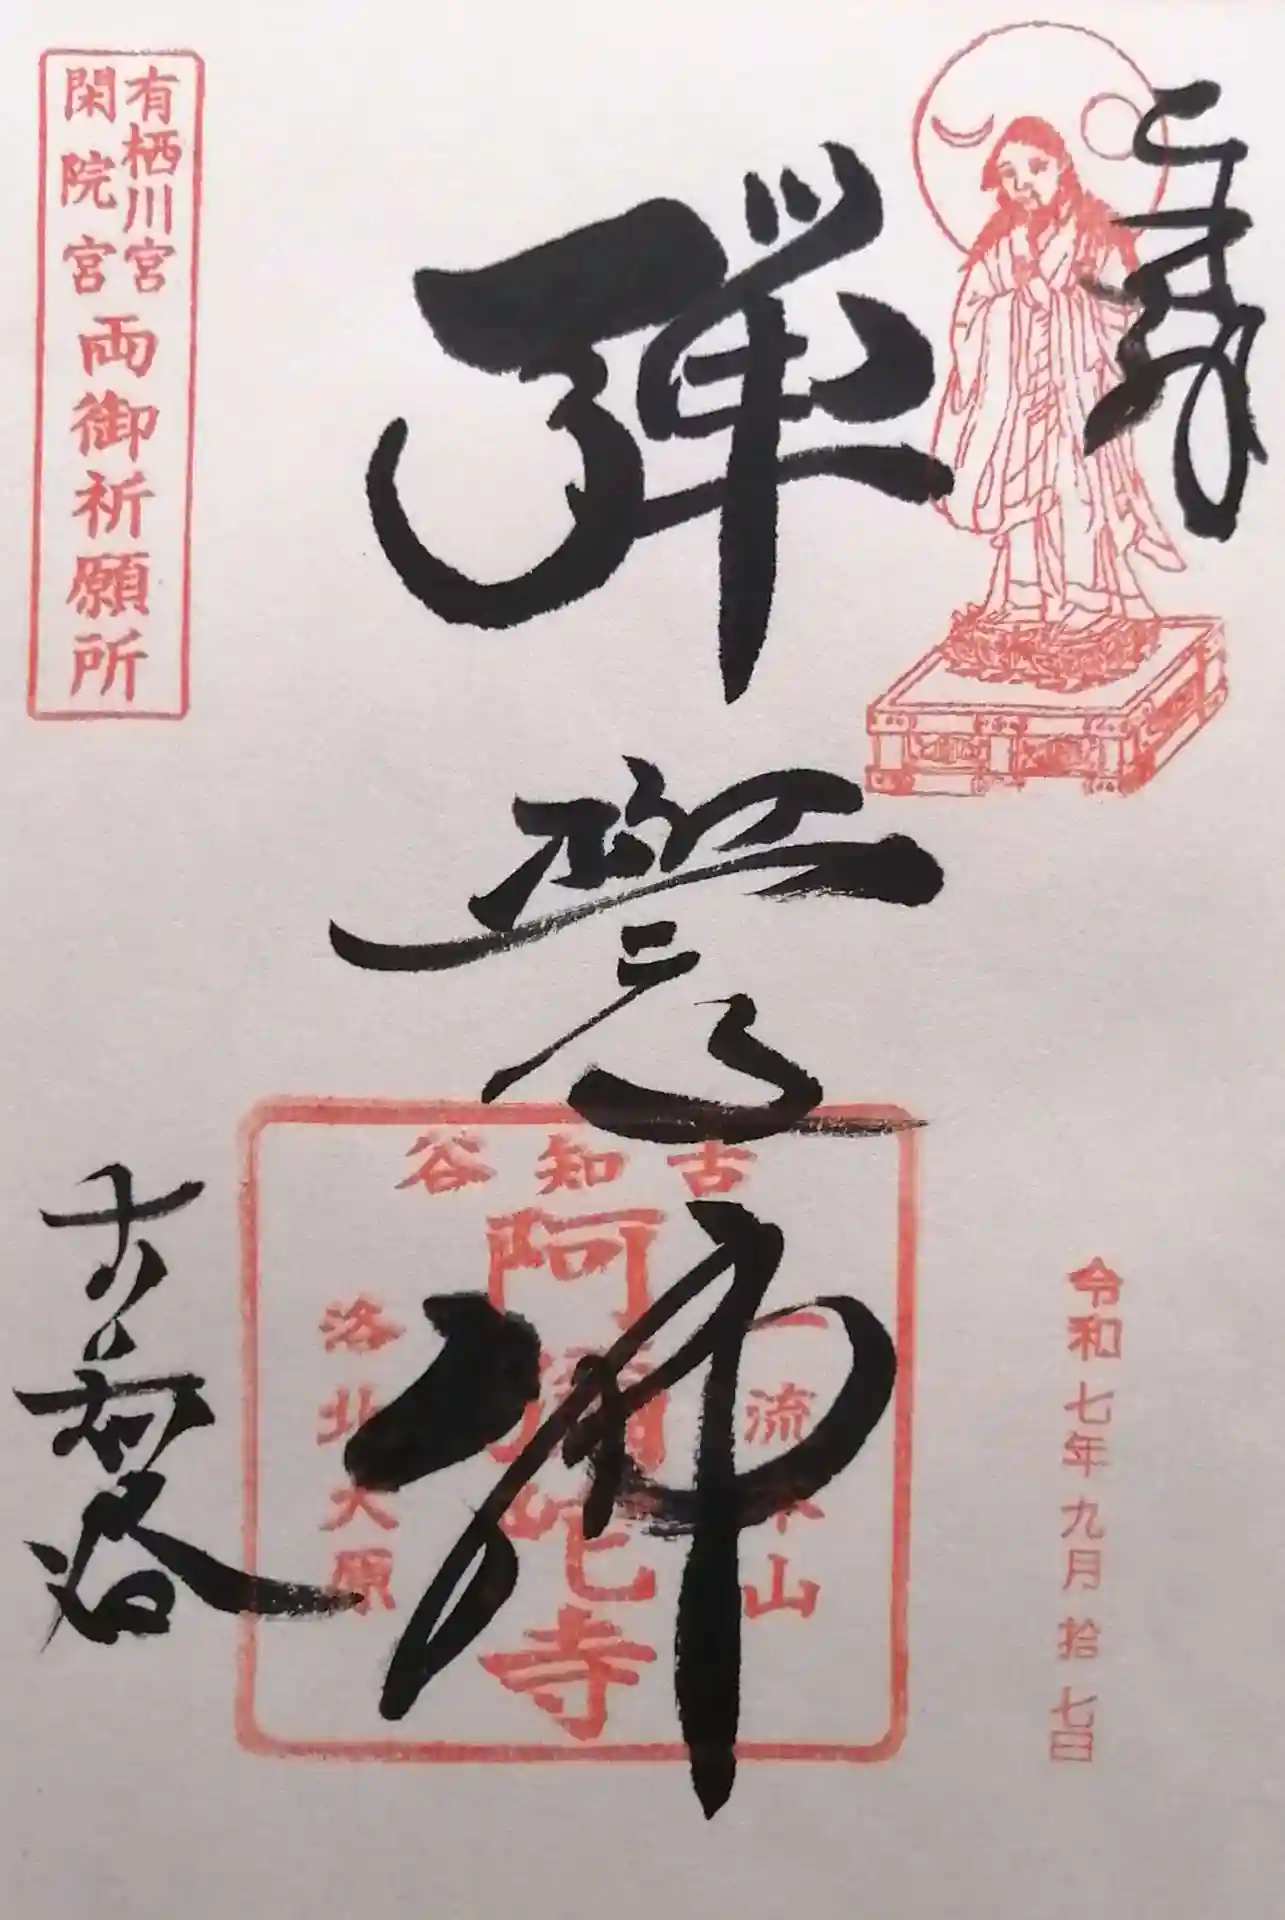 奉拝
彈誓佛
古知谷
有栖川宮
閑院宮
両御祈願所
古知谷
一流本山
阿彌陀寺
洛北大原
令和七年九月拾七日